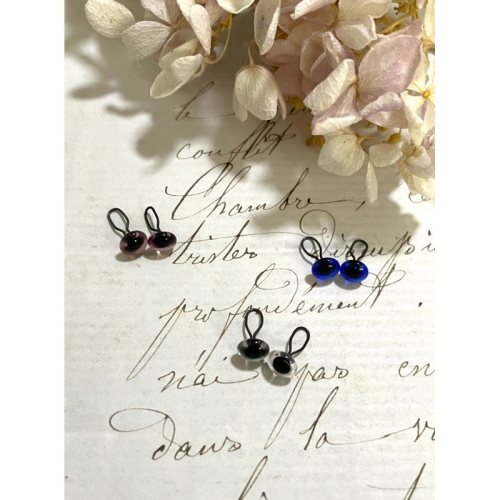 le
conflit
Chambre,
tristes
profondément.
n'ai pas en
dans la